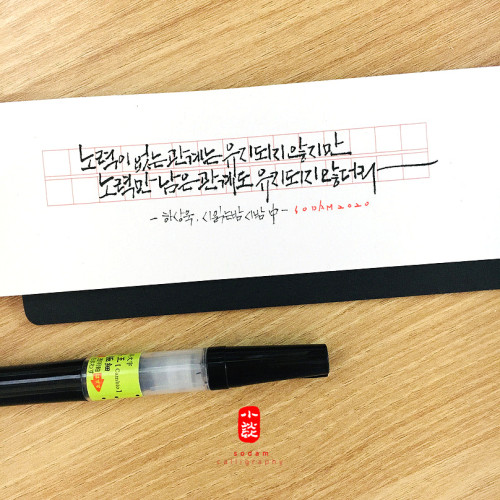 노력이 없는 관계는 유지되지 않지만
노력만 남은 관계도 유지되지 않더라
- 하상욱. 시 읽는 밤 시밤 中 - SODAM 2020
[Cambio]
極細
小談
sodam
calligraphy